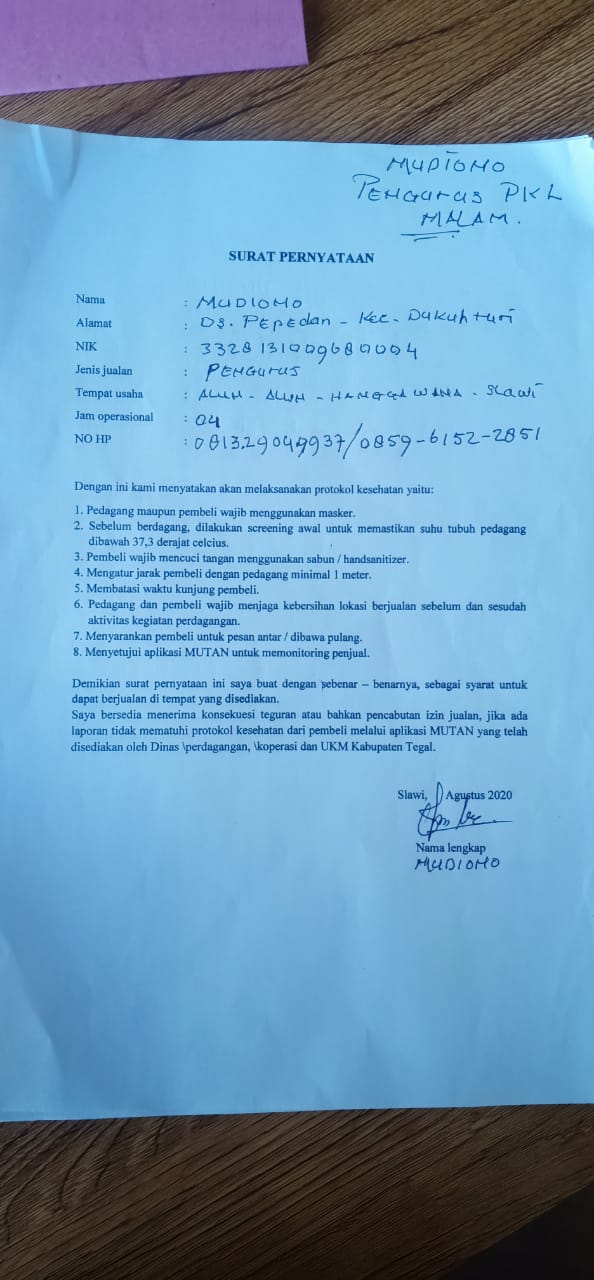 MUDIONO
PENGURUS PKL
MALAM.
SURAT PERNYATAAN
Nama : MUDIONO
Alamat : Ds. PEPEdan - Kec. Dukuhturi
NIK : 3328131009680004
Jenis jualan : PENGURUS
Tempat usaha : ALUN - ALUN - HANGGAWANA - Slawi
Jam operasional : 04
NO HP : 081329049937/0859-6152-2851
Dengan ini kami menyatakan akan melaksanakan protokol kesehatan yaitu:
1. Pedagang maupun pembeli wajib menggunakan masker.
2. Sebelum berdagang, dilakukan screening awal untuk memastikan suhu tubuh pedagang
dibawah 37,3 derajat celcius.
3. Pembeli wajib mencuci tangan menggunakan sabun / handsanitizer.
4. Mengatur jarak pembeli dengan pedagang minimal 1 meter.
5. Membatasi waktu kunjung pembeli.
6. Pedagang dan pembeli wajib menjaga kebersihan lokasi berjualan sebelum dan sesudah
aktivitas kegiatan perdagangan.
7. Menyarankan pembeli untuk pesan antar / dibawa pulang.
8. Menyetujui aplikasi MUTAN untuk memonitoring penjual.
Demikian surat pernyataan ini saya buat dengan sebenar – benarnya, sebagai syarat untuk
dapat berjualan di tempat yang disediakan.
Saya bersedia menerima konsekuesi teguran atau bahkan pencabutan izin jualan, jika ada
laporan tidak mematuhi protokol kesehatan dari pembeli melalui aplikasi MUTAN yang telah
disediakan oleh Dinas \perdagangan, \koperasi dan UKM Kabupaten Tegal.
Slawi, Agustus 2020
Nama lengkap
MUDIONO